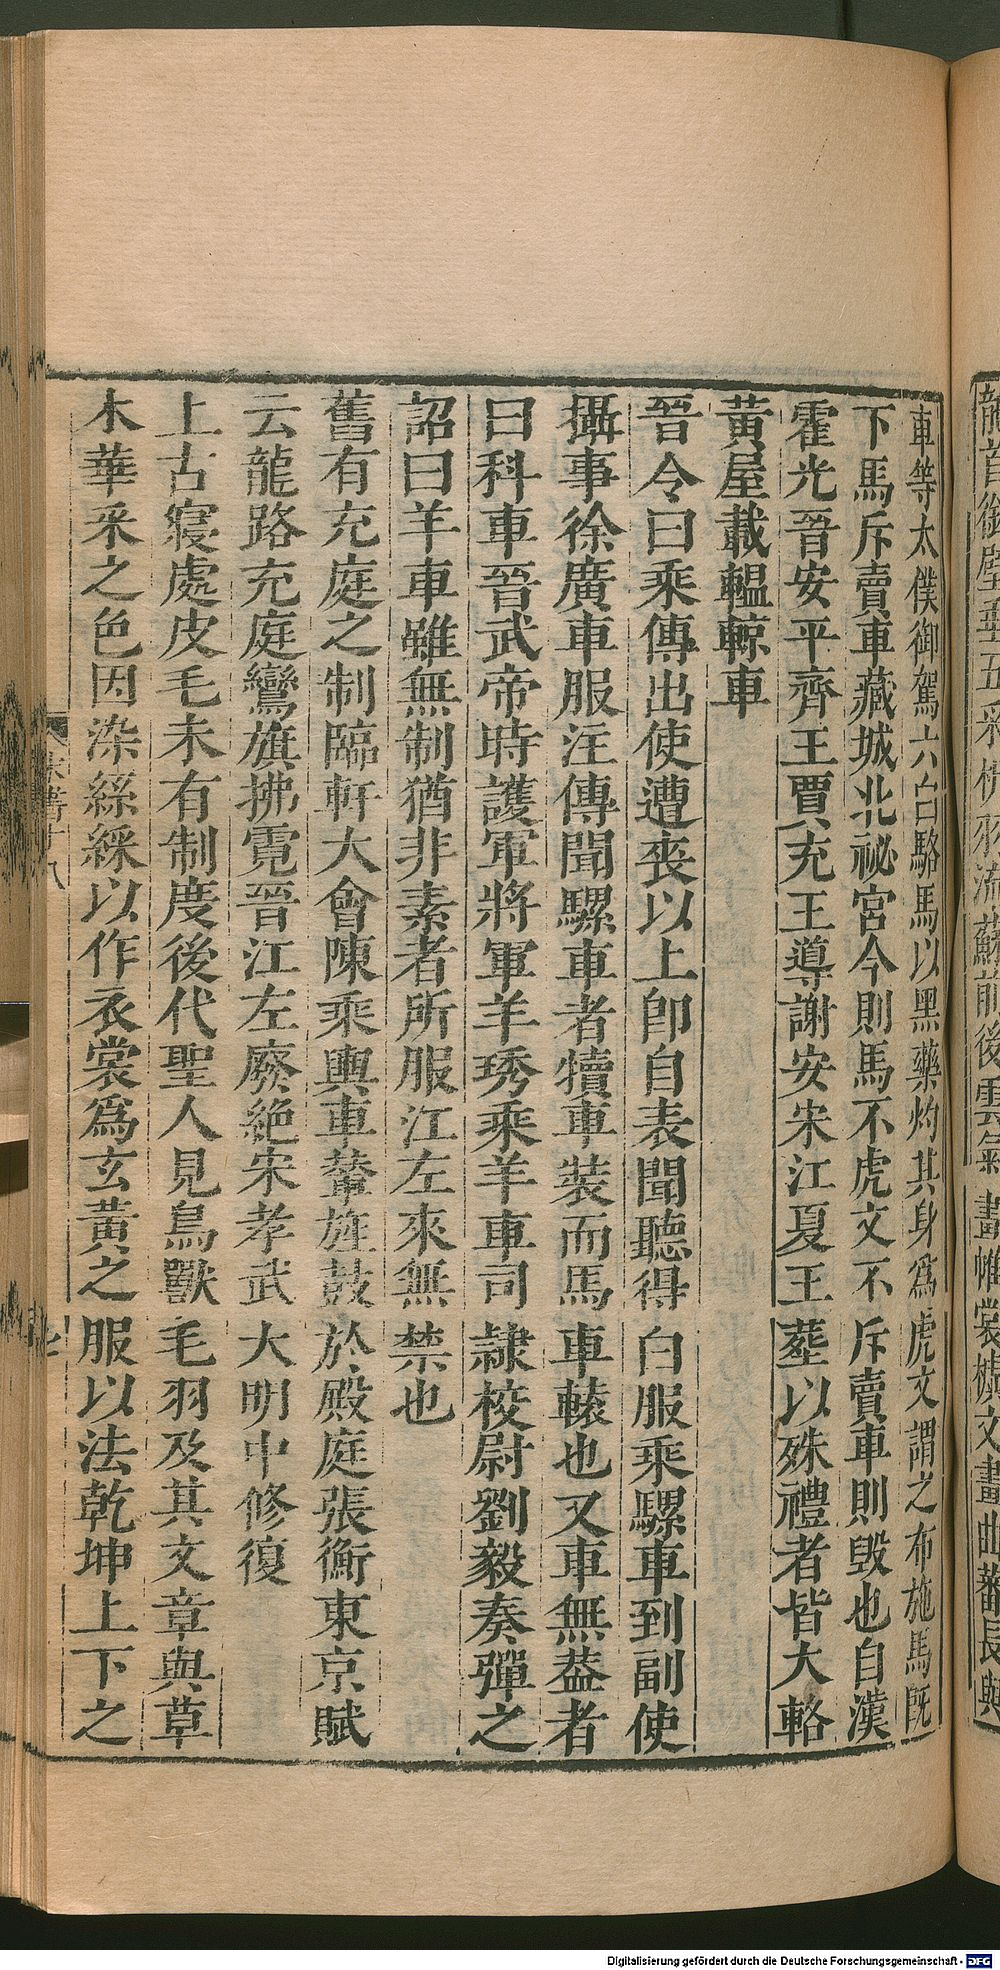 車等太僕御駕六白駱馬以黑藥灼其身爲虎文謂之布施馬旣
下馬斥賣車藏城北祕宮今則馬不虎文不斥賣車則毀也自漢
霍光晉安平齊王賈充王導謝安宋江夏王葬以殊禮者皆大輅
黃屋載轀輬車
晉令曰乘傳出使遭喪以上卽自表聞聽得白服乘騾車到副使
攝事徐廣車服注傳聞騾車者犢車裝而馬車轅也又車無蓋者
曰科車晉武帝時護軍將軍羊琇乘羊車司隸校尉劉毅奏彈之
詔曰羊車雖無制猶非素者所服江左來無禁也
舊有充庭之制臨軒大會陳乘輿車輦旌鼓於殿庭張衡東京賦
云龍路充庭鸞旗拂霓晉江左廢絶宋孝武大明中修復
上古寢處皮毛未有制度後代聖人見鳥獸毛羽及其文章與草
木華采之色因染絲綵以作衣裳爲玄黃之服以法乾坤上下之
宋書十八
Digitalisierung gefördert durch die Deutsche Forschungsgemeinschaft - DFG